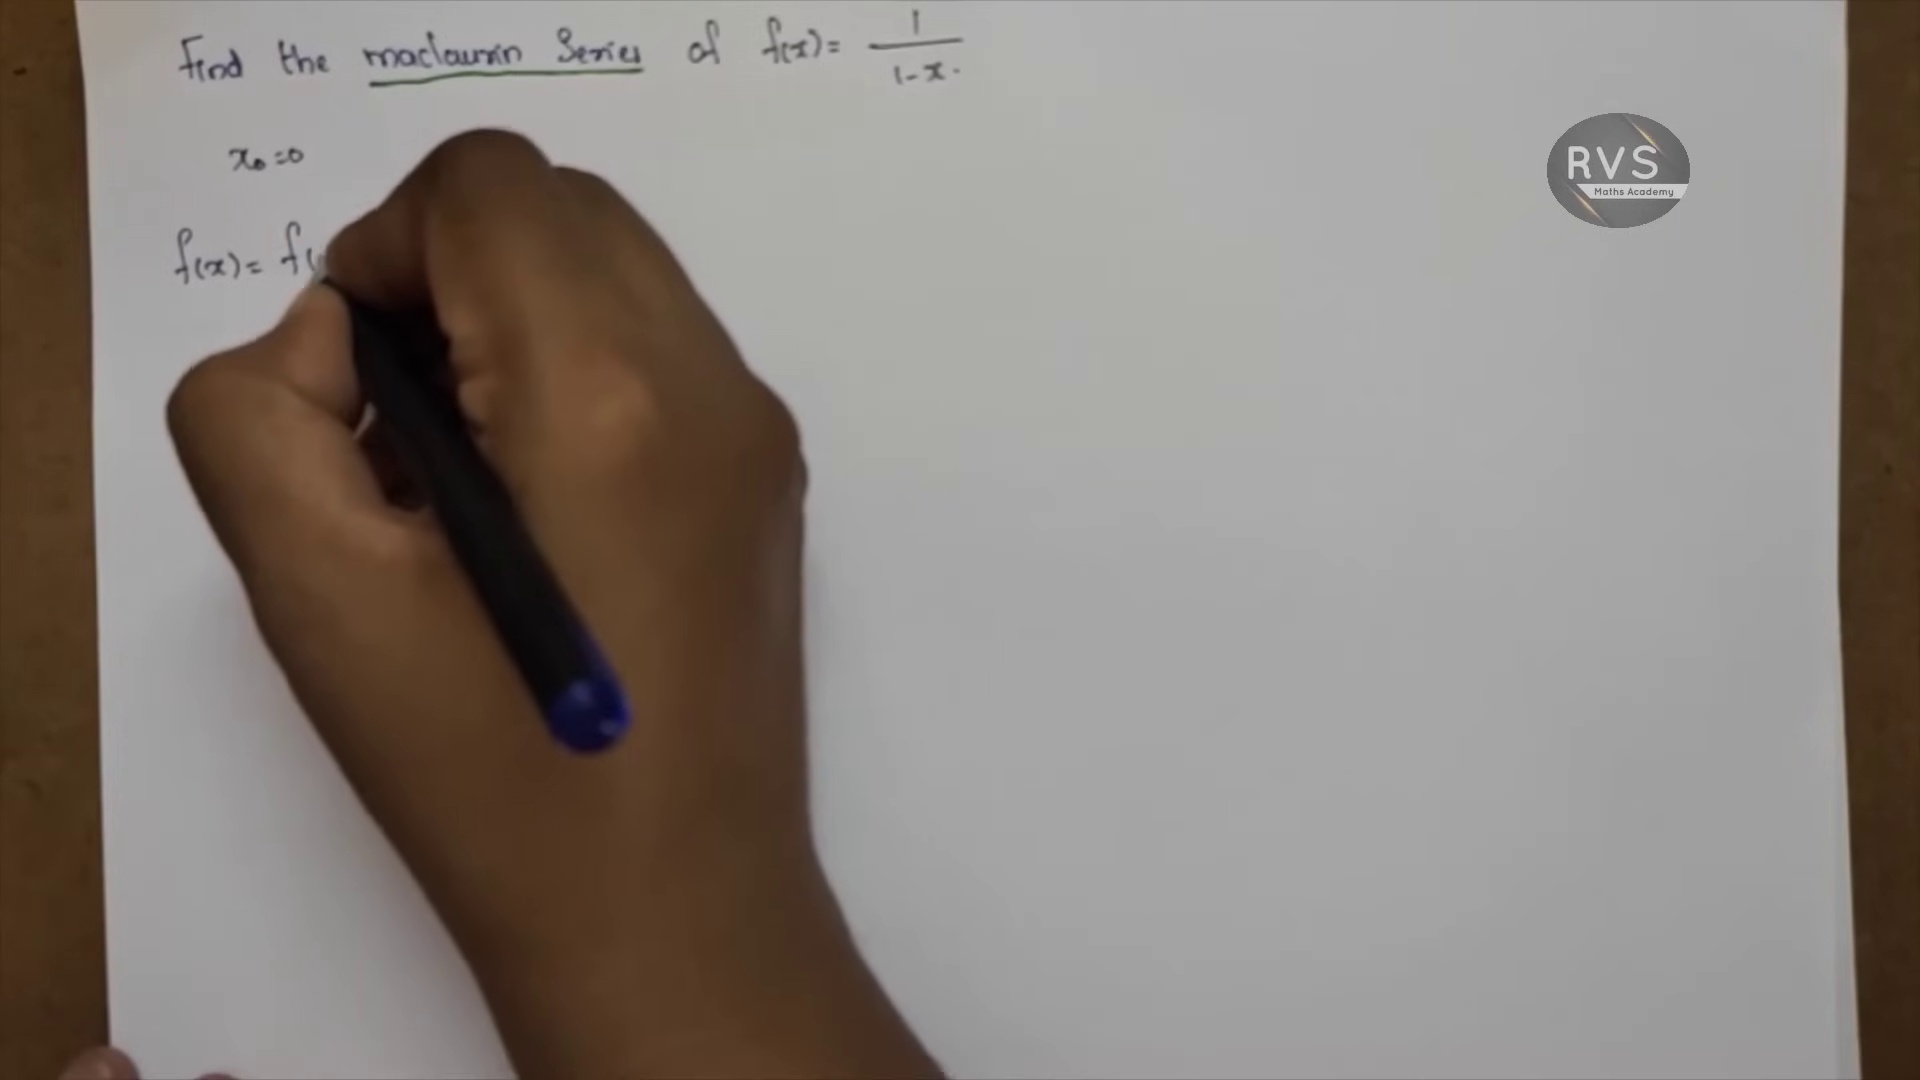 Find the maclaurin Series of f(x) = 1/1-x.
x₀=0
f(x)= f(
RVS
Maths Academy